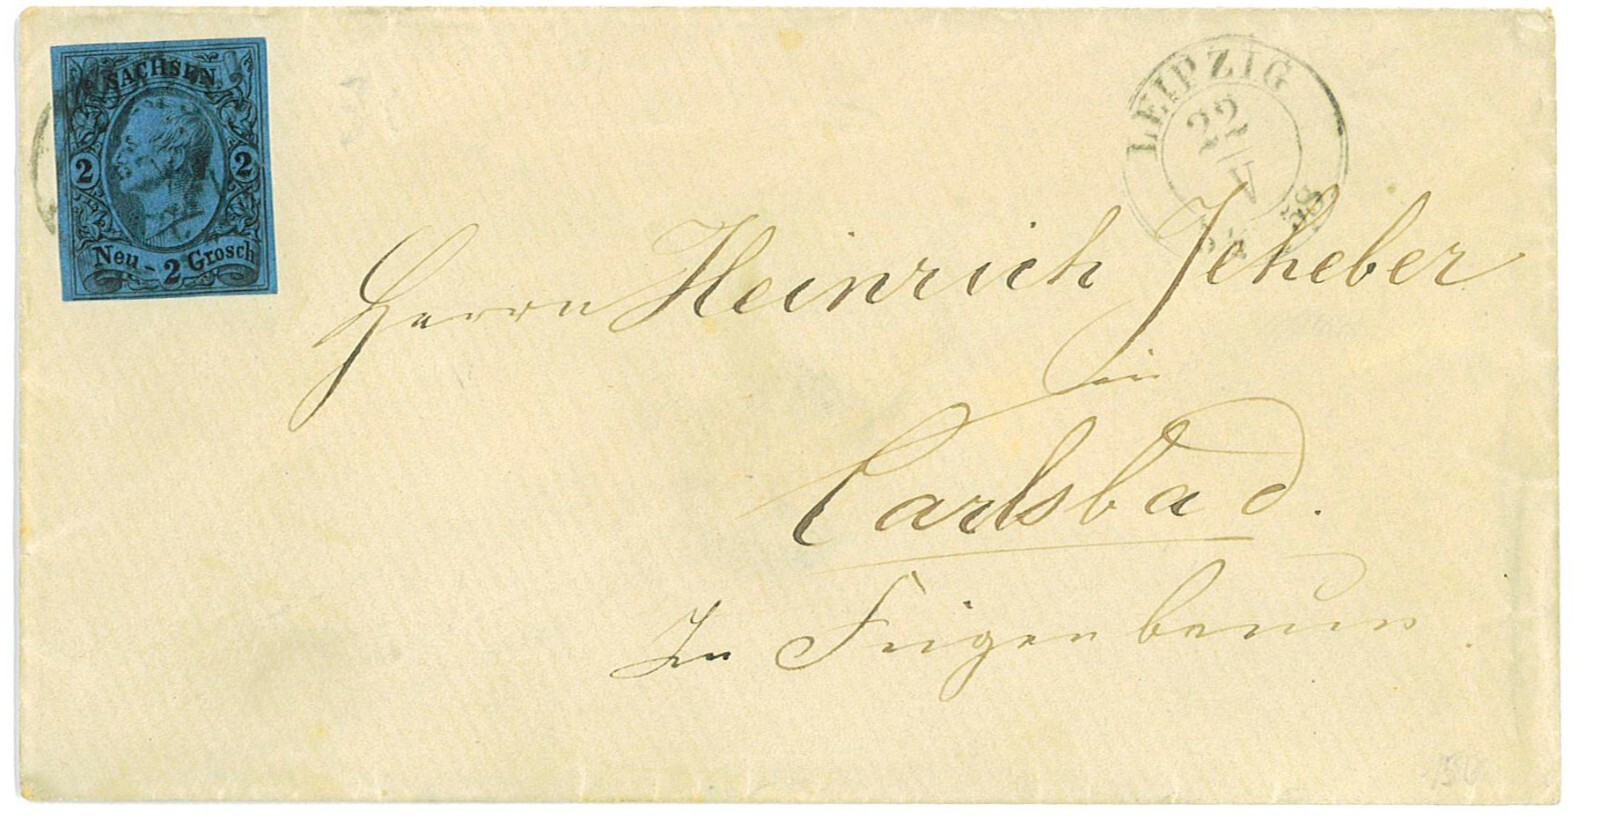 SACHSEN
2 2
Neu - 2 Grosch
LEIPZIG
22
V
58
Herrn Heinrich Jeheber
in
Carlsbad.
Im Feigenbaum
150